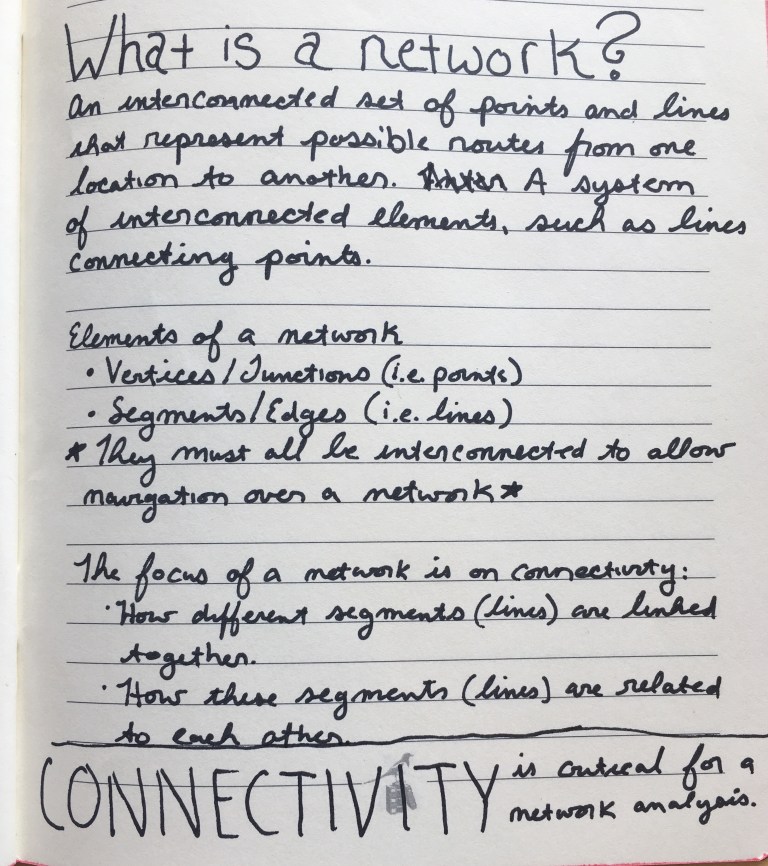 What is a network?
An interconnected set of points and lines
that represent possible routes from one
location to another. A system
of interconnected elements, such as lines
connecting points.
Elements of a network
• Vertices/Junctions (i.e. points)
• Segments/Edges (i.e. lines)
* They must all be interconnected to allow
navigation over a network *
The focus of a network is on connectivity:
• How different segments (lines) are linked
together.
• How these segments (lines) are related
to each other.
CONNECTIVITY is critical for a
network analysis.